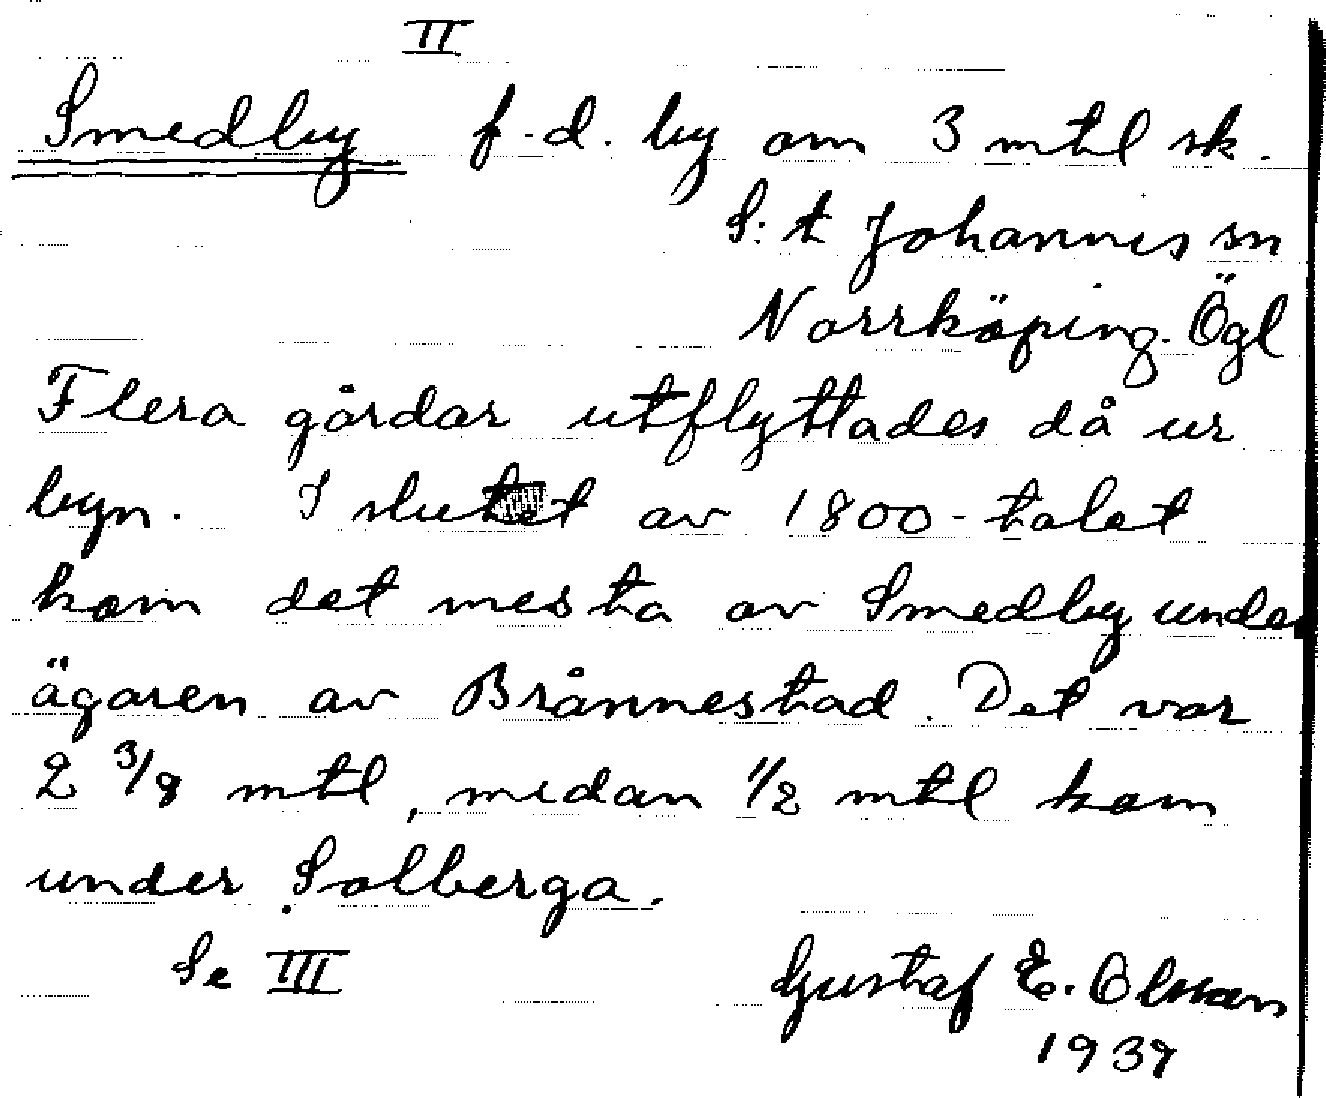 II
Smedby f.d. by om 3 mtl sk.
S:t Johannes sn
Norrköping. Ögl
Flera gårdar utflyttades då ur
byn. I slutet av 1800-talet
kom det mesta av Smedby under
ägaren av Brånnestad. Det var
2 3/8 mtl, medan 1/2 mtl kom
under Solberga.
Se III
Gustaf E. Olsson
1939